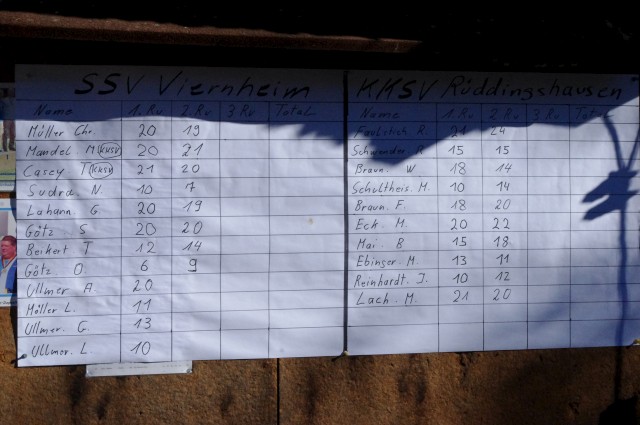 SSV Viernheim
Name 1. Ru 2 Ru 3 Ru Total
Müller Chr. 20 19
Mandel M (KKSV) 20 21
Casey T (KKSV) 21 20
Sudra N. 10 7
Lahann G. 20 19
Götz S 20 20
Beikert T 12 14
Götz O 6 9
Ullmer A. 20
Müller L. 11
Ullmer. G. 13
Ullmer. L 10
KKSV Rüddingshausen
Name 1 Ru 2 Ru 3 Ru Total
Faulstich R. 21 24
Schwender. R 15 15
Braun. W 18 14
Schultheis. M. 10 14
Braun. F. 18 20
Eck. M. 20 22
Mai B 15 18
Ebinger. M 13 11
Reinhardt. J. 10 12
Lach. M. 21 20